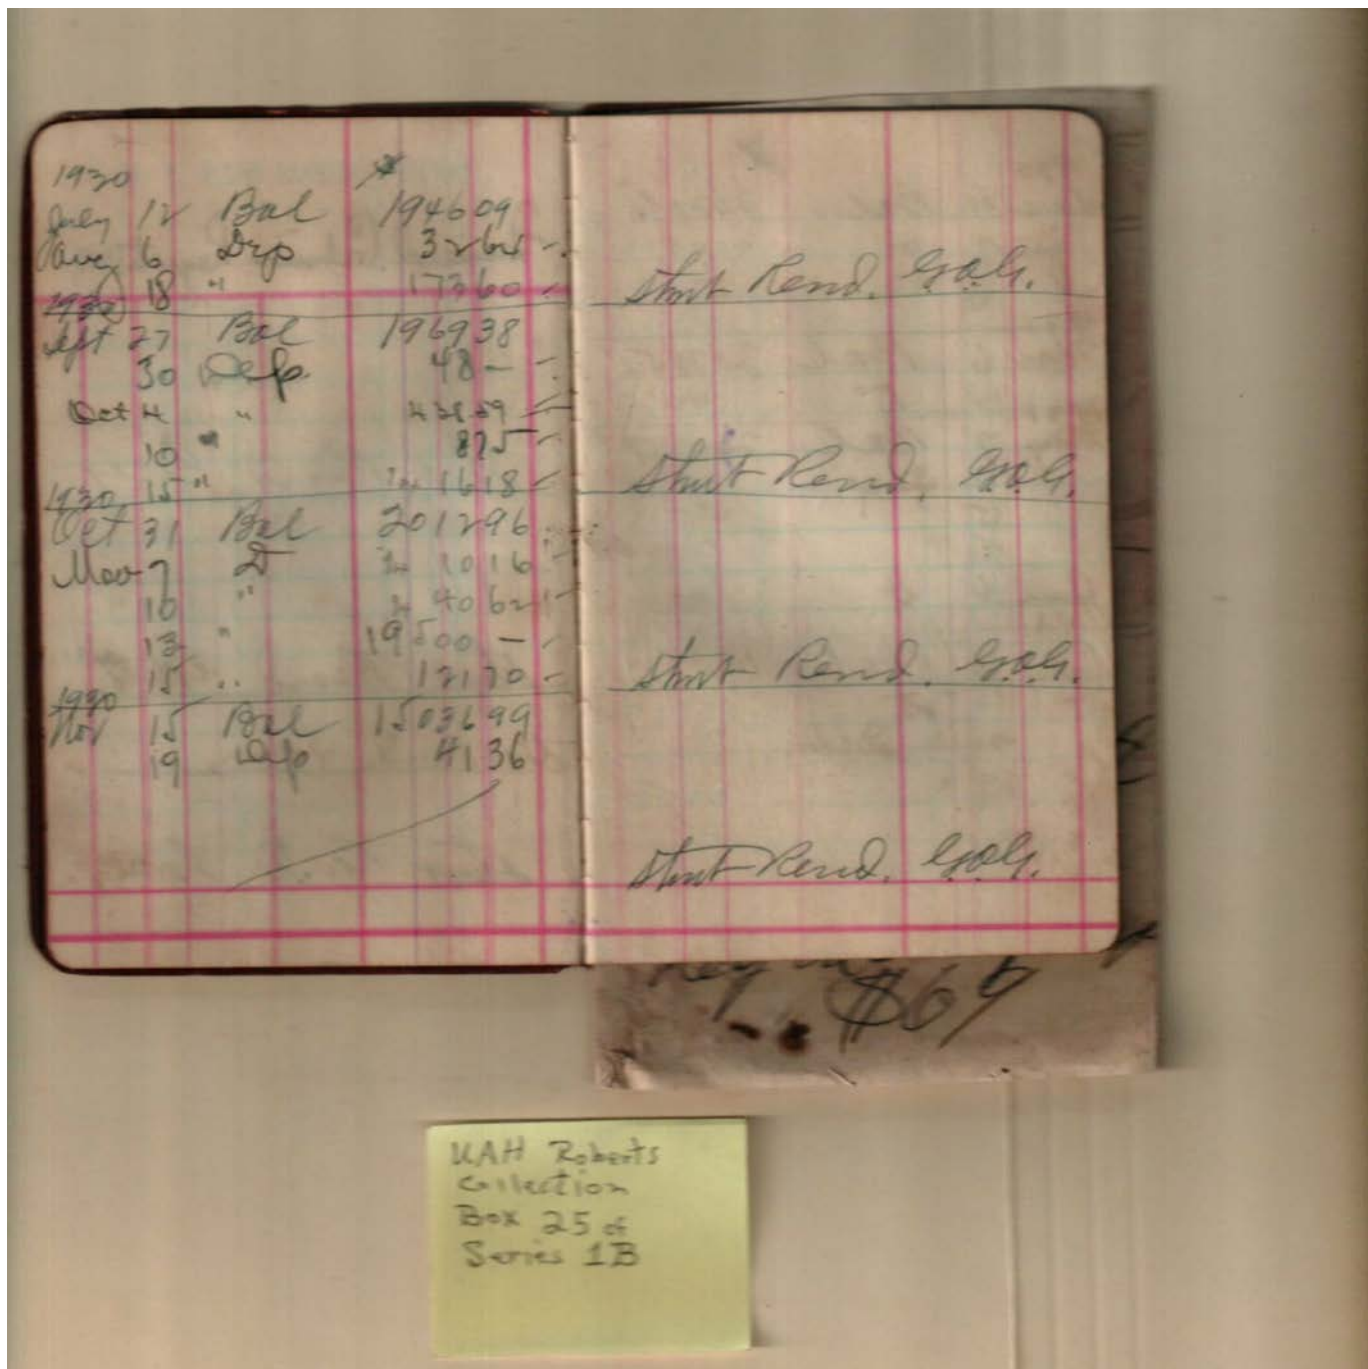 1930 $
July 12 Bal 194609
Aug 6 Dep 3265 -
18 " 17360 -
1930
Sept 27 Bal 196938
30 Dep. 48 - -
Oct 4 " 43859 -
10 " 875 -
15 " 1618 -
1930
Oct 31 Bal 201296
Nov 7 D 1016 -
10 " 4062 -
13 " 19500 - -
15 " 12170 -
1930
Nov 15 Bal 1503699
19 Dep 4136
Stmt Rend. G.O.G.
Stmt Rend. G.O.G.
Stmt Rend. G.O.G.
Stmt Rend. G.O.G.
$69
UAH Roberts
Collection
Box 25 of
Series 1B